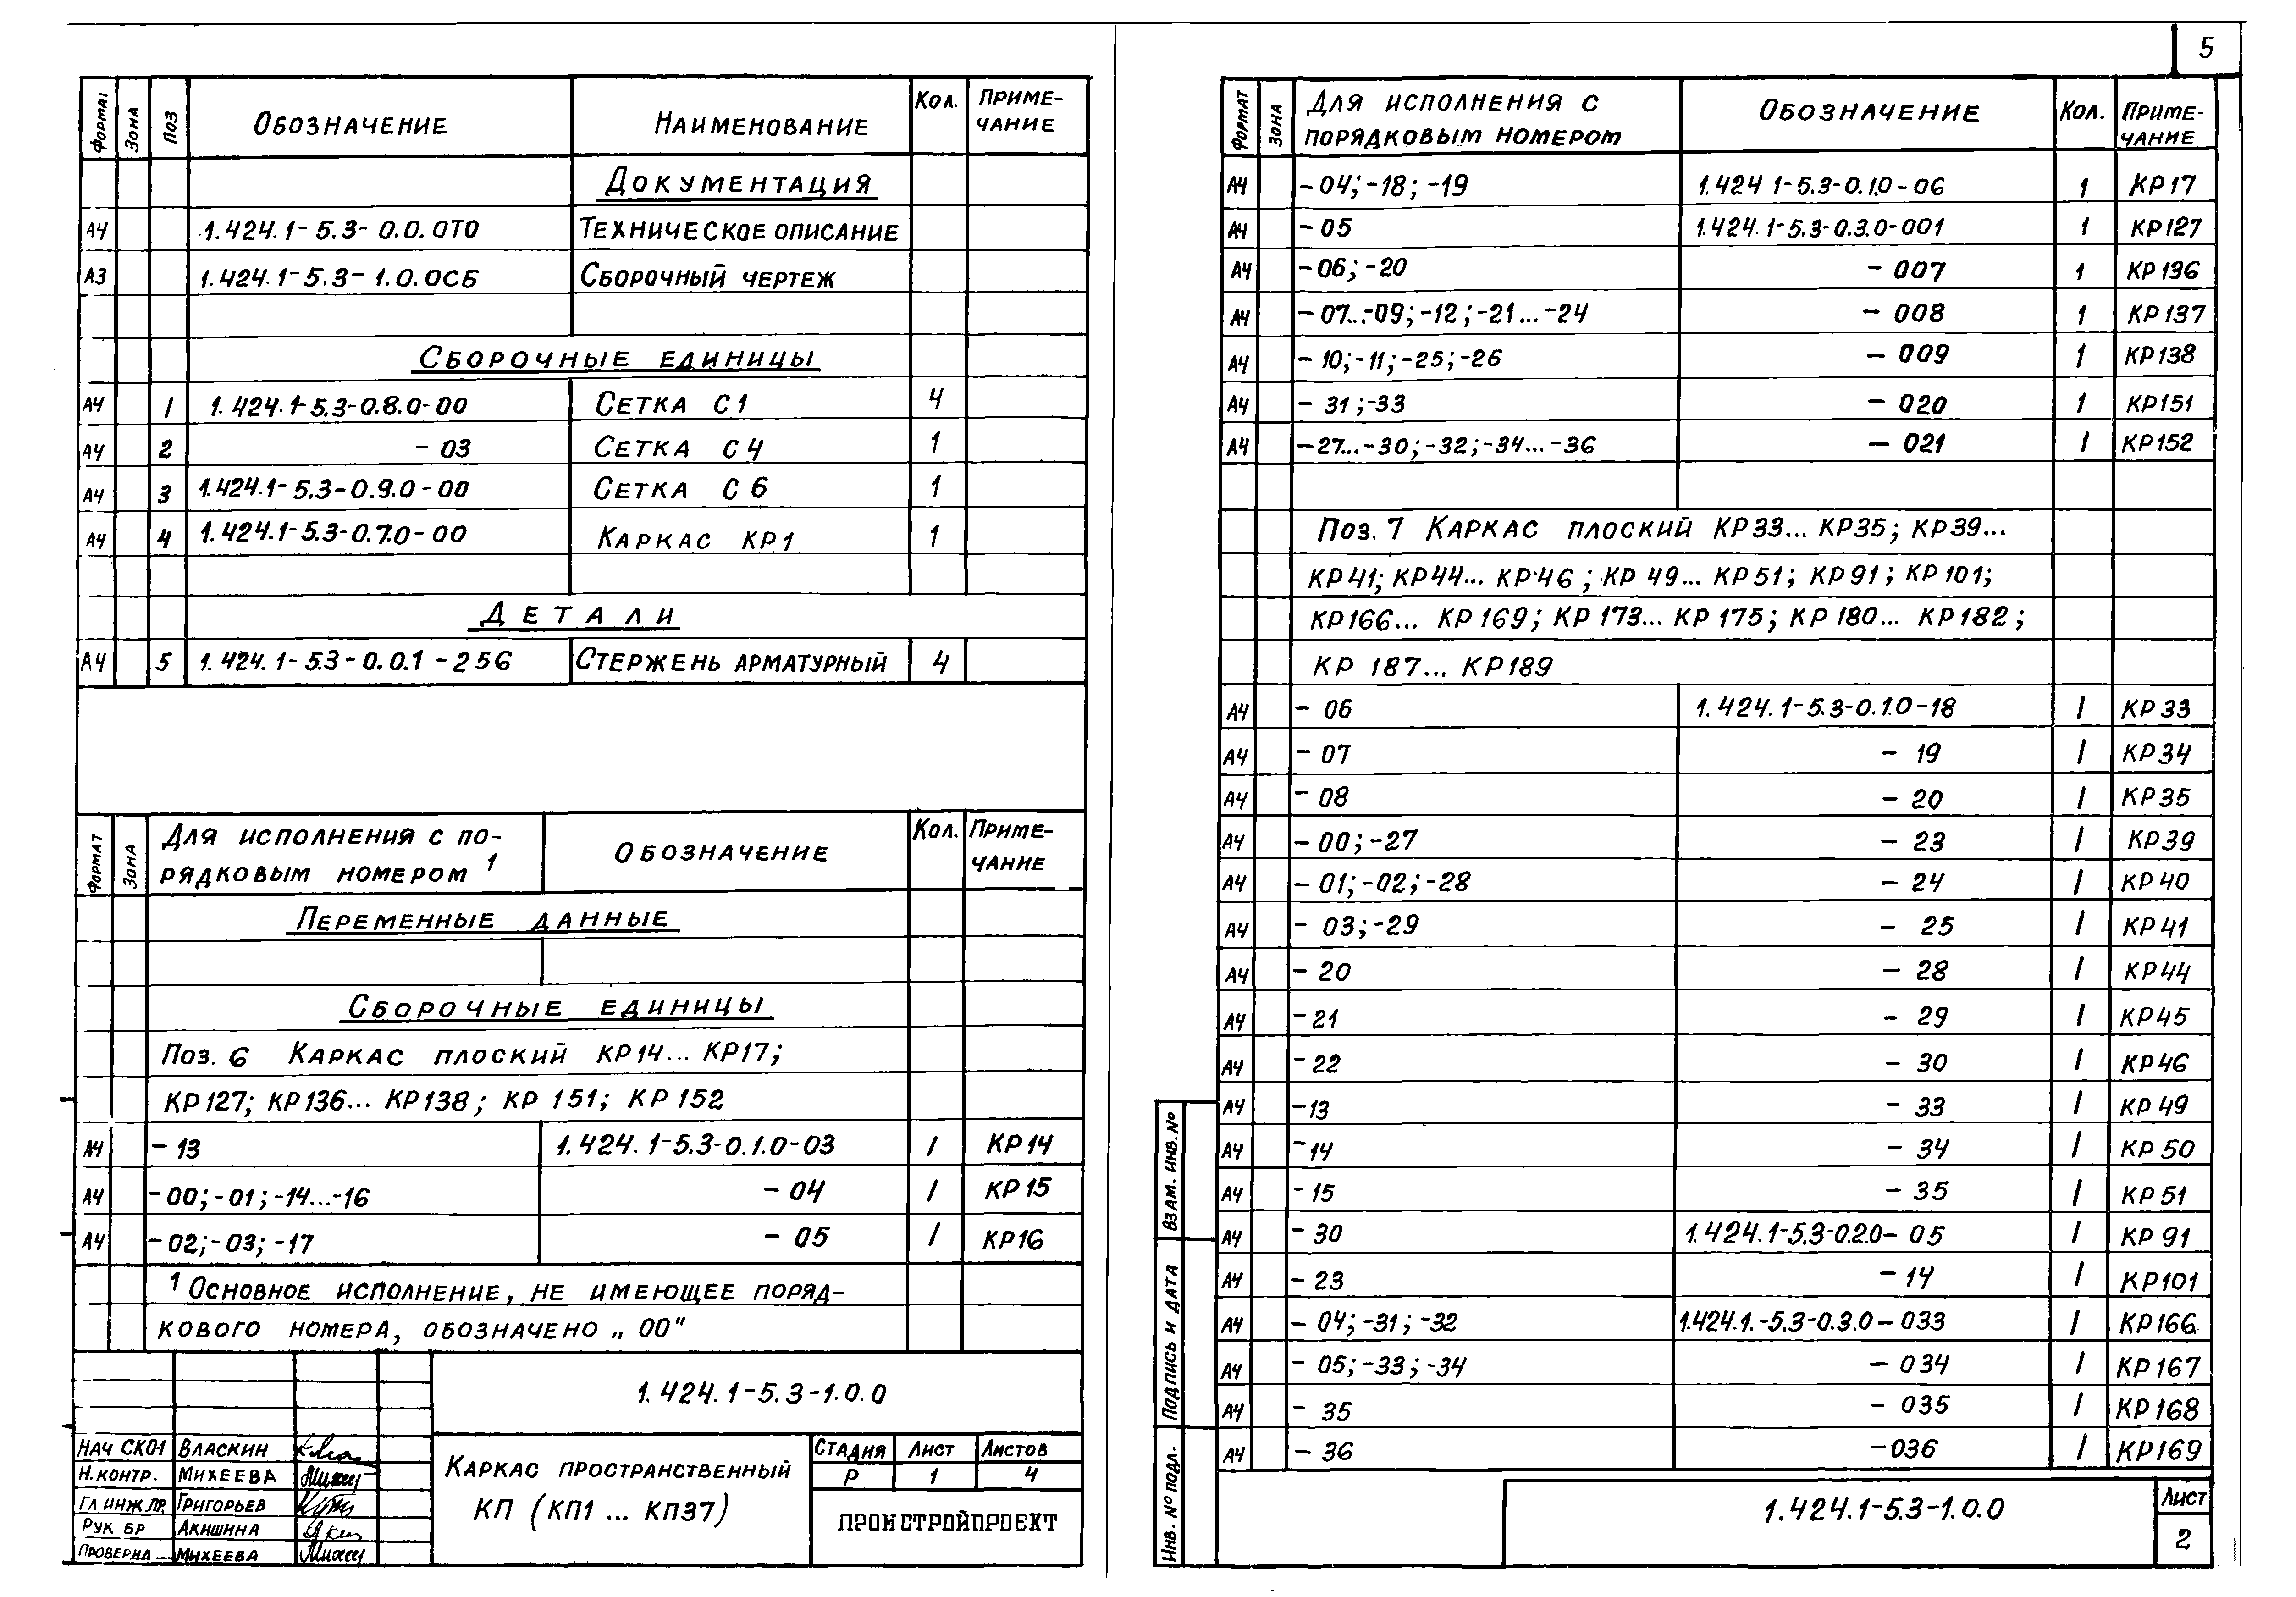 5
ФОРМАТ ЗОНА ПОЗ ОБОЗНАЧЕНИЕ НАИМЕНОВАНИЕ КОЛ. ПРИМЕ-
ЧАНИЕ
ДОКУМЕНТАЦИЯ
А4 1.424.1-5.3-0.0.0ТО ТЕХНИЧЕСКОЕ ОПИСАНИЕ
А3 1.424.1-5.3-1.0.0СБ СБОРОЧНЫЙ ЧЕРТЕЖ
СБОРОЧНЫЕ ЕДИНИЦЫ
А4 1 1.424.1-5.3-0.8.0-00 СЕТКА С1 4
А4 2 - 03 СЕТКА С4 1
А4 3 1.424.1-5.3-0.9.0-00 СЕТКА С6 1
А4 4 1.424.1-5.3-0.7.0-00 КАРКАС КР1 1
ДЕТАЛИ
А4 5 1.424.1-5.3-0.0.1-256 СТЕРЖЕНЬ АРМАТУРНЫЙ 4
ФОРМАТ ЗОНА ДЛЯ ИСПОЛНЕНИЯ С ПО-
РЯДКОВЫМ НОМЕРОМ 1 ОБОЗНАЧЕНИЕ КОЛ. ПРИМЕ-
ЧАНИЕ
ПЕРЕМЕННЫЕ ДАННЫЕ
СБОРОЧНЫЕ ЕДИНИЦЫ
ПОЗ. 6 КАРКАС ПЛОСКИЙ КР14... КР17;
КР127; КР136... КР138; КР 151; КР 152
А4 - 13 1.424.1-5.3-0.1.0-03 1 КР14
А4 -00; -01; -14...-16 - 04 1 КР15
А4 -02; -03; -17 - 05 1 КР16
1 ОСНОВНОЕ ИСПОЛНЕНИЕ, НЕ ИМЕЮЩЕЕ ПОРЯД-
КОВОГО НОМЕРА, ОБОЗНАЧЕНО „ 00"
1.424.1-5.3-1.0.0
НАЧ СКО-1 ВЛАСКИН
Н.КОНТР. МИХЕЕВА
ГЛ ИНЖ.ПР. ГРИГОРЬЕВ
РУК БР АКИШИНА
ПРОВЕРИЛ МИХЕЕВА
КАРКАС ПРОСТРАНСТВЕННЫЙ
КП (КП1 ... КП37)
СТАДИЯ ЛИСТ ЛИСТОВ
Р 1 4
ПРОМСТРОЙПРОЕКТ
ФОРМАТ ЗОНА ДЛЯ ИСПОЛНЕНИЯ С
ПОРЯДКОВЫМ НОМЕРОМ ОБОЗНАЧЕНИЕ КОЛ. ПРИМЕ-
ЧАНИЕ
А4 - 04; -18; -19 1.424 1-5.3-0.1.0-06 1 КР17
А4 - 05 1.424.1-5.3-0.3.0-001 1 КР127
А4 -06; -20 - 007 1 КР136
А4 - 07...-09; -12; -21...-24 - 008 1 КР137
А4 - 10; -11; -25; -26 - 009 1 КР138
А4 - 31; -33 - 020 1 КР151
А4 -27...-30; -32; -34...-36 - 021 1 КР152
ПОЗ. 7 КАРКАС ПЛОСКИЙ КР33... КР35; КР39...
КР41; КР44... КР46; КР 49... КР51; КР91; КР101;
КР166... КР169; КР 173... КР 175; КР180... КР182;
КР 187... КР189
А4 - 06 1.424.1-5.3-0.1.0-18 1 КР33
А4 - 07 - 19 1 КР34
А4 - 08 - 20 1 КР35
А4 - 00; -27 - 23 1 КР39
А4 - 01; -02; -28 - 24 1 КР40
А4 - 03; -29 - 25 1 КР41
А4 - 20 - 28 1 КР44
А4 -21 - 29 1 КР45
А4 -22 - 30 1 КР46
А4 -13 - 33 1 КР49
А4 -14 - 34 1 КР50
А4 - 15 - 35 1 КР51
А4 - 30 1.424.1-5.3-0.2.0- 05 1 КР91
А4 - 23 - 14 1 КР101
А4 - 04; -31; -32 1.424.1.-5.3-0.3.0-033 1 КР166
А4 - 05; -33; -34 - 034 1 КР167
А4 - 35 - 035 1 КР168
А4 - 36 -036 1 КР169
ВЗАМ. ИНВ.№
ПОДПИСЬ И ДАТА
ИНВ. № ПОДЛ.
1.424.1-5.3-1.0.0
ЛИСТ
2